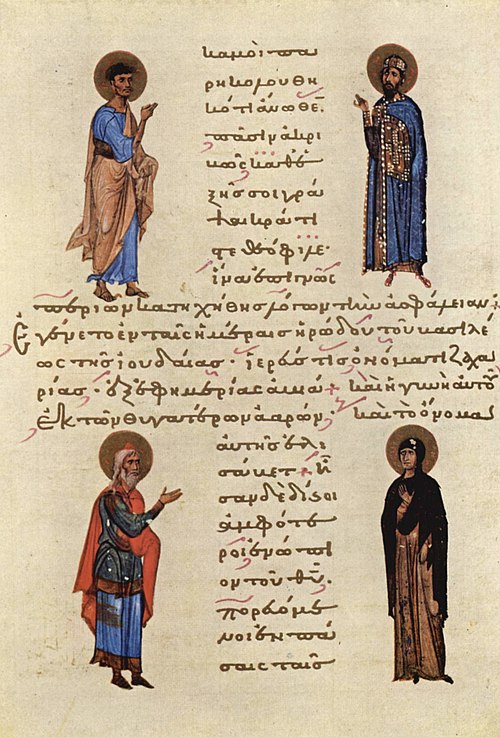 κἀμοὶ πα
ρηκολουθη
κότι ἄνωθε
πᾶσιν ἀκρι
βῶς καθε
ξῆς σοι γρά
ψαι κράτι
στε θεόφιλε·
ἵνα ἐπιγνῶς
περὶ ὧν κατηχήθης λόγων τὴν ἀσφάλειαν:
Ἐγένετο ἐν ταῖς ἡμέραις ἡρώδου τοῦ βασιλέ
ως τῆς ἰουδαίας· ἱερεύς τις ὀνόματι ζαχα
ρίας· ἐξ ἐφημερίας ἀβιά· καὶ ἡ γυνὴ αὐτοῦ
ἐκ τῶν θυγατέρων ἀαρών· καὶ τὸ ὄνομα
αὐτῆς ἐλι
σάβετ· ἦ
σαν δὲ δίκαιοι
ἀμφότε
ροι ἐνώπι
ον τοῦ θῦ·
πορευόμε
νοι ἐν πά
σαις ταῖς